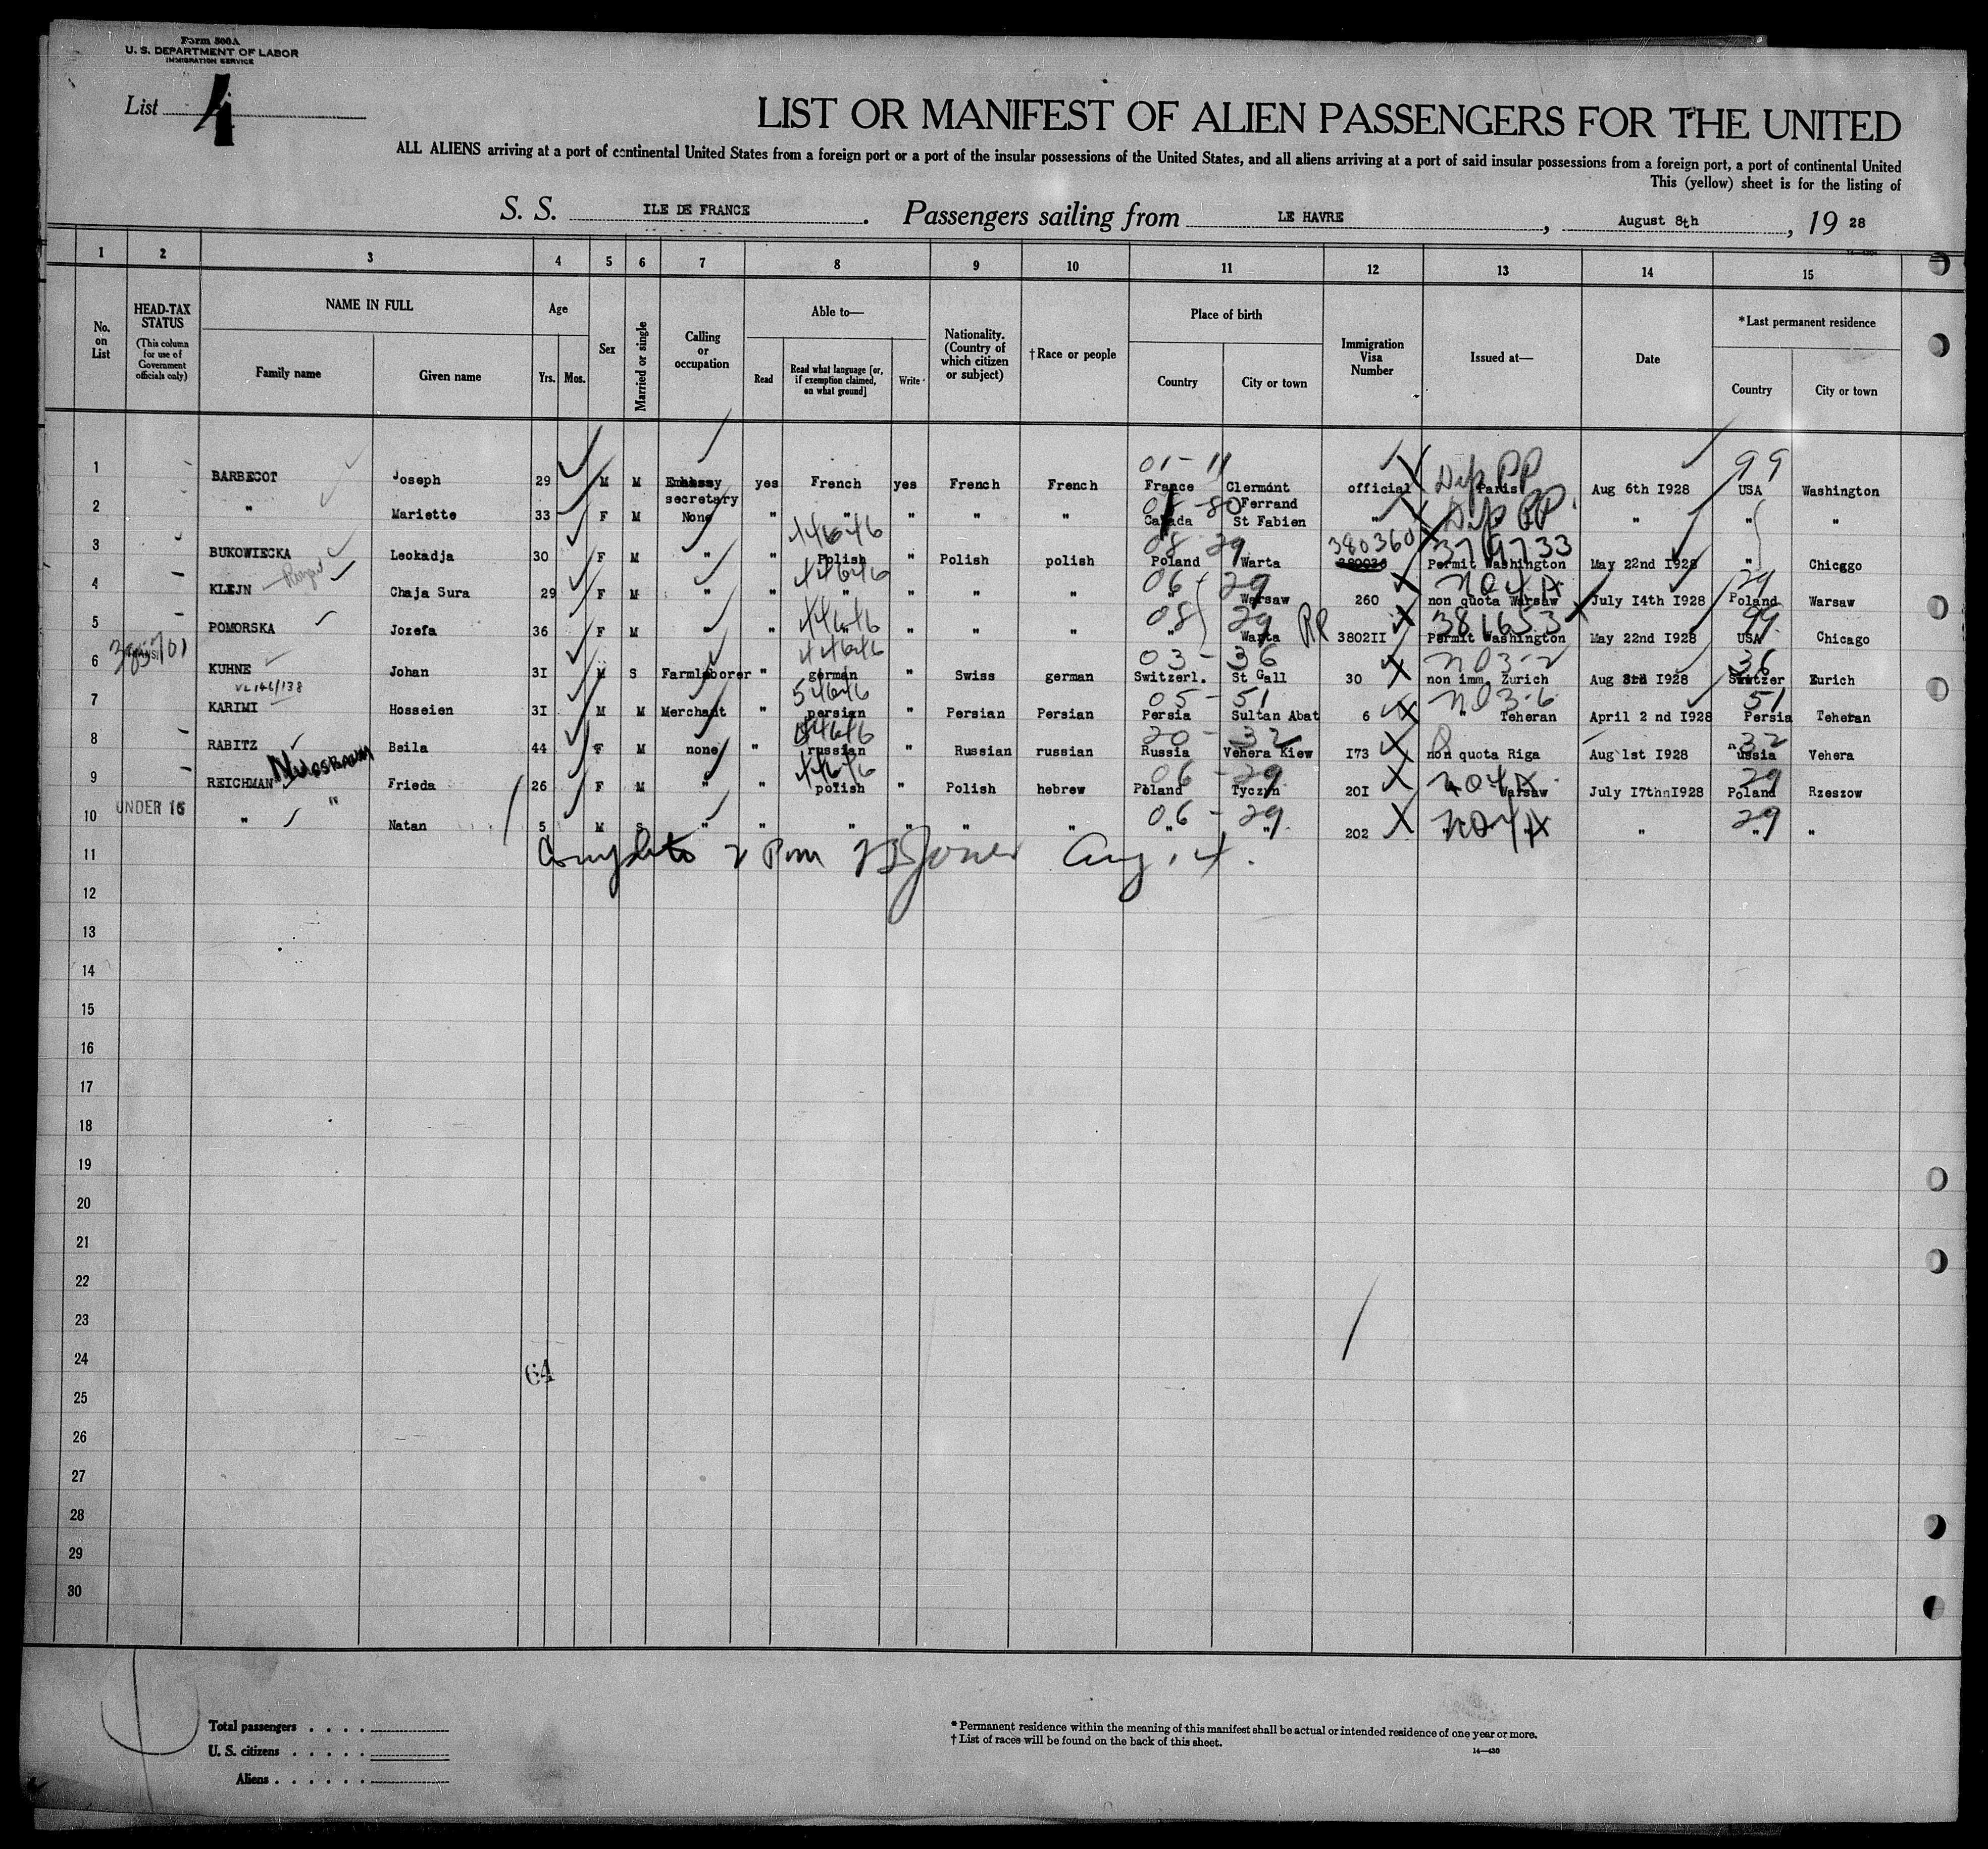 Form 500A
U. S. DEPARTMENT OF LABOR
IMMIGRATION SERVICE
List 4
LIST OR MANIFEST OF ALIEN PASSENGERS FOR THE UNITED
ALL ALIENS arriving at a port of continental United States from a foreign port or a port of the insular possessions of the United States, and all aliens arriving at a port of said insular possessions from a foreign port, a port of continental United
This (yellow) sheet is for the listing of
S. S. ILE DE FRANCE. Passengers sailing from LE HAVRE, August 8th, 19 28
1 2 3 4 5 6 7 8 9 10 11 12 13 14 15
No. on List
HEAD-TAX STATUS
(This column for use of Government officials only)
NAME IN FULL
Family name Given name
Age
Yrs. Mos.
Sex
Married or single
Calling or occupation
Able to—
Read Read what language [or, if exemption claimed, on what ground] Write
Nationality. (Country of which citizen or subject)
†Race or people
Place of birth
Country City or town
Immigration Visa Number
Issued at—
Date
*Last permanent residence
Country City or town
01-11 Dip PP 99
1 BARBECOT Joseph 29 M M Embassy secretary yes French yes French French France Clermont Ferrand official Paris Aug 6th I928 USA Washington
Dip PP
2 " Mariette 33 F M None " " " " " Canada St Fabien " " " "
08 29 380360 379733
3 BUKOWIECKA Leokadja 30 F M " " Polish " Polish polish Poland Warta Permit Washington May 22nd I928 " Chicago
06-29 NO4A 29
4 KLEJN Chaja Sura 29 F M " " " " " " " Warsaw 260 non quota Warsaw July I4th I928 Poland Warsaw
08 29 PP 381653 99
5 POMORSKA Jozefa 36 F M " " " " " " " Warta 3802II Permit Washington May 22nd I928 USA Chicago
03-36 NO3-2 36
6 KUHNE Johan 3I M S Farmlaborer " german " Swiss german Switzerl. St Gall 30 non imm. Zurich Aug 3rd I928 Switzer Zurich
VL146/138 54646 05-51 NO3-6 51
7 KARIMI Hosseien 3I M M Merchant " persian " Persian Persian Persia Sultan Abat 6 " Teheran April 2 nd I928 Persia Teheran
20-32 32
8 RABITZ Beila 44 F M none " russian " Russian russian Russia Vehera Kiew I73 non quota Riga Aug 1st I928 "ussia Vehera
NUSSBAUM 06-29 NO4A 29
9 REICHMAN Frieda 26 F M " " polish " Polish hebrew Poland Tyczyn 20I " Warsaw July I7th I928 Poland Rzeszow
UNDER 16 " 06-29 NO4A 29
10 " Natan 5 M S " " " " " " " " 202 " " " "
11 Complete 2 Pm Jones Aug. 14.
12
13
14
15
16
17
18
19
20
21
22
23
24
64
25
26
27
28
29
30
Total passengers . . . .
U. S. citizens . . . . .
Aliens . . . . . .
* Permanent residence within the meaning of this manifest shall be actual or intended residence of one year or more.
† List of races will be found on the back of this sheet.
14—430